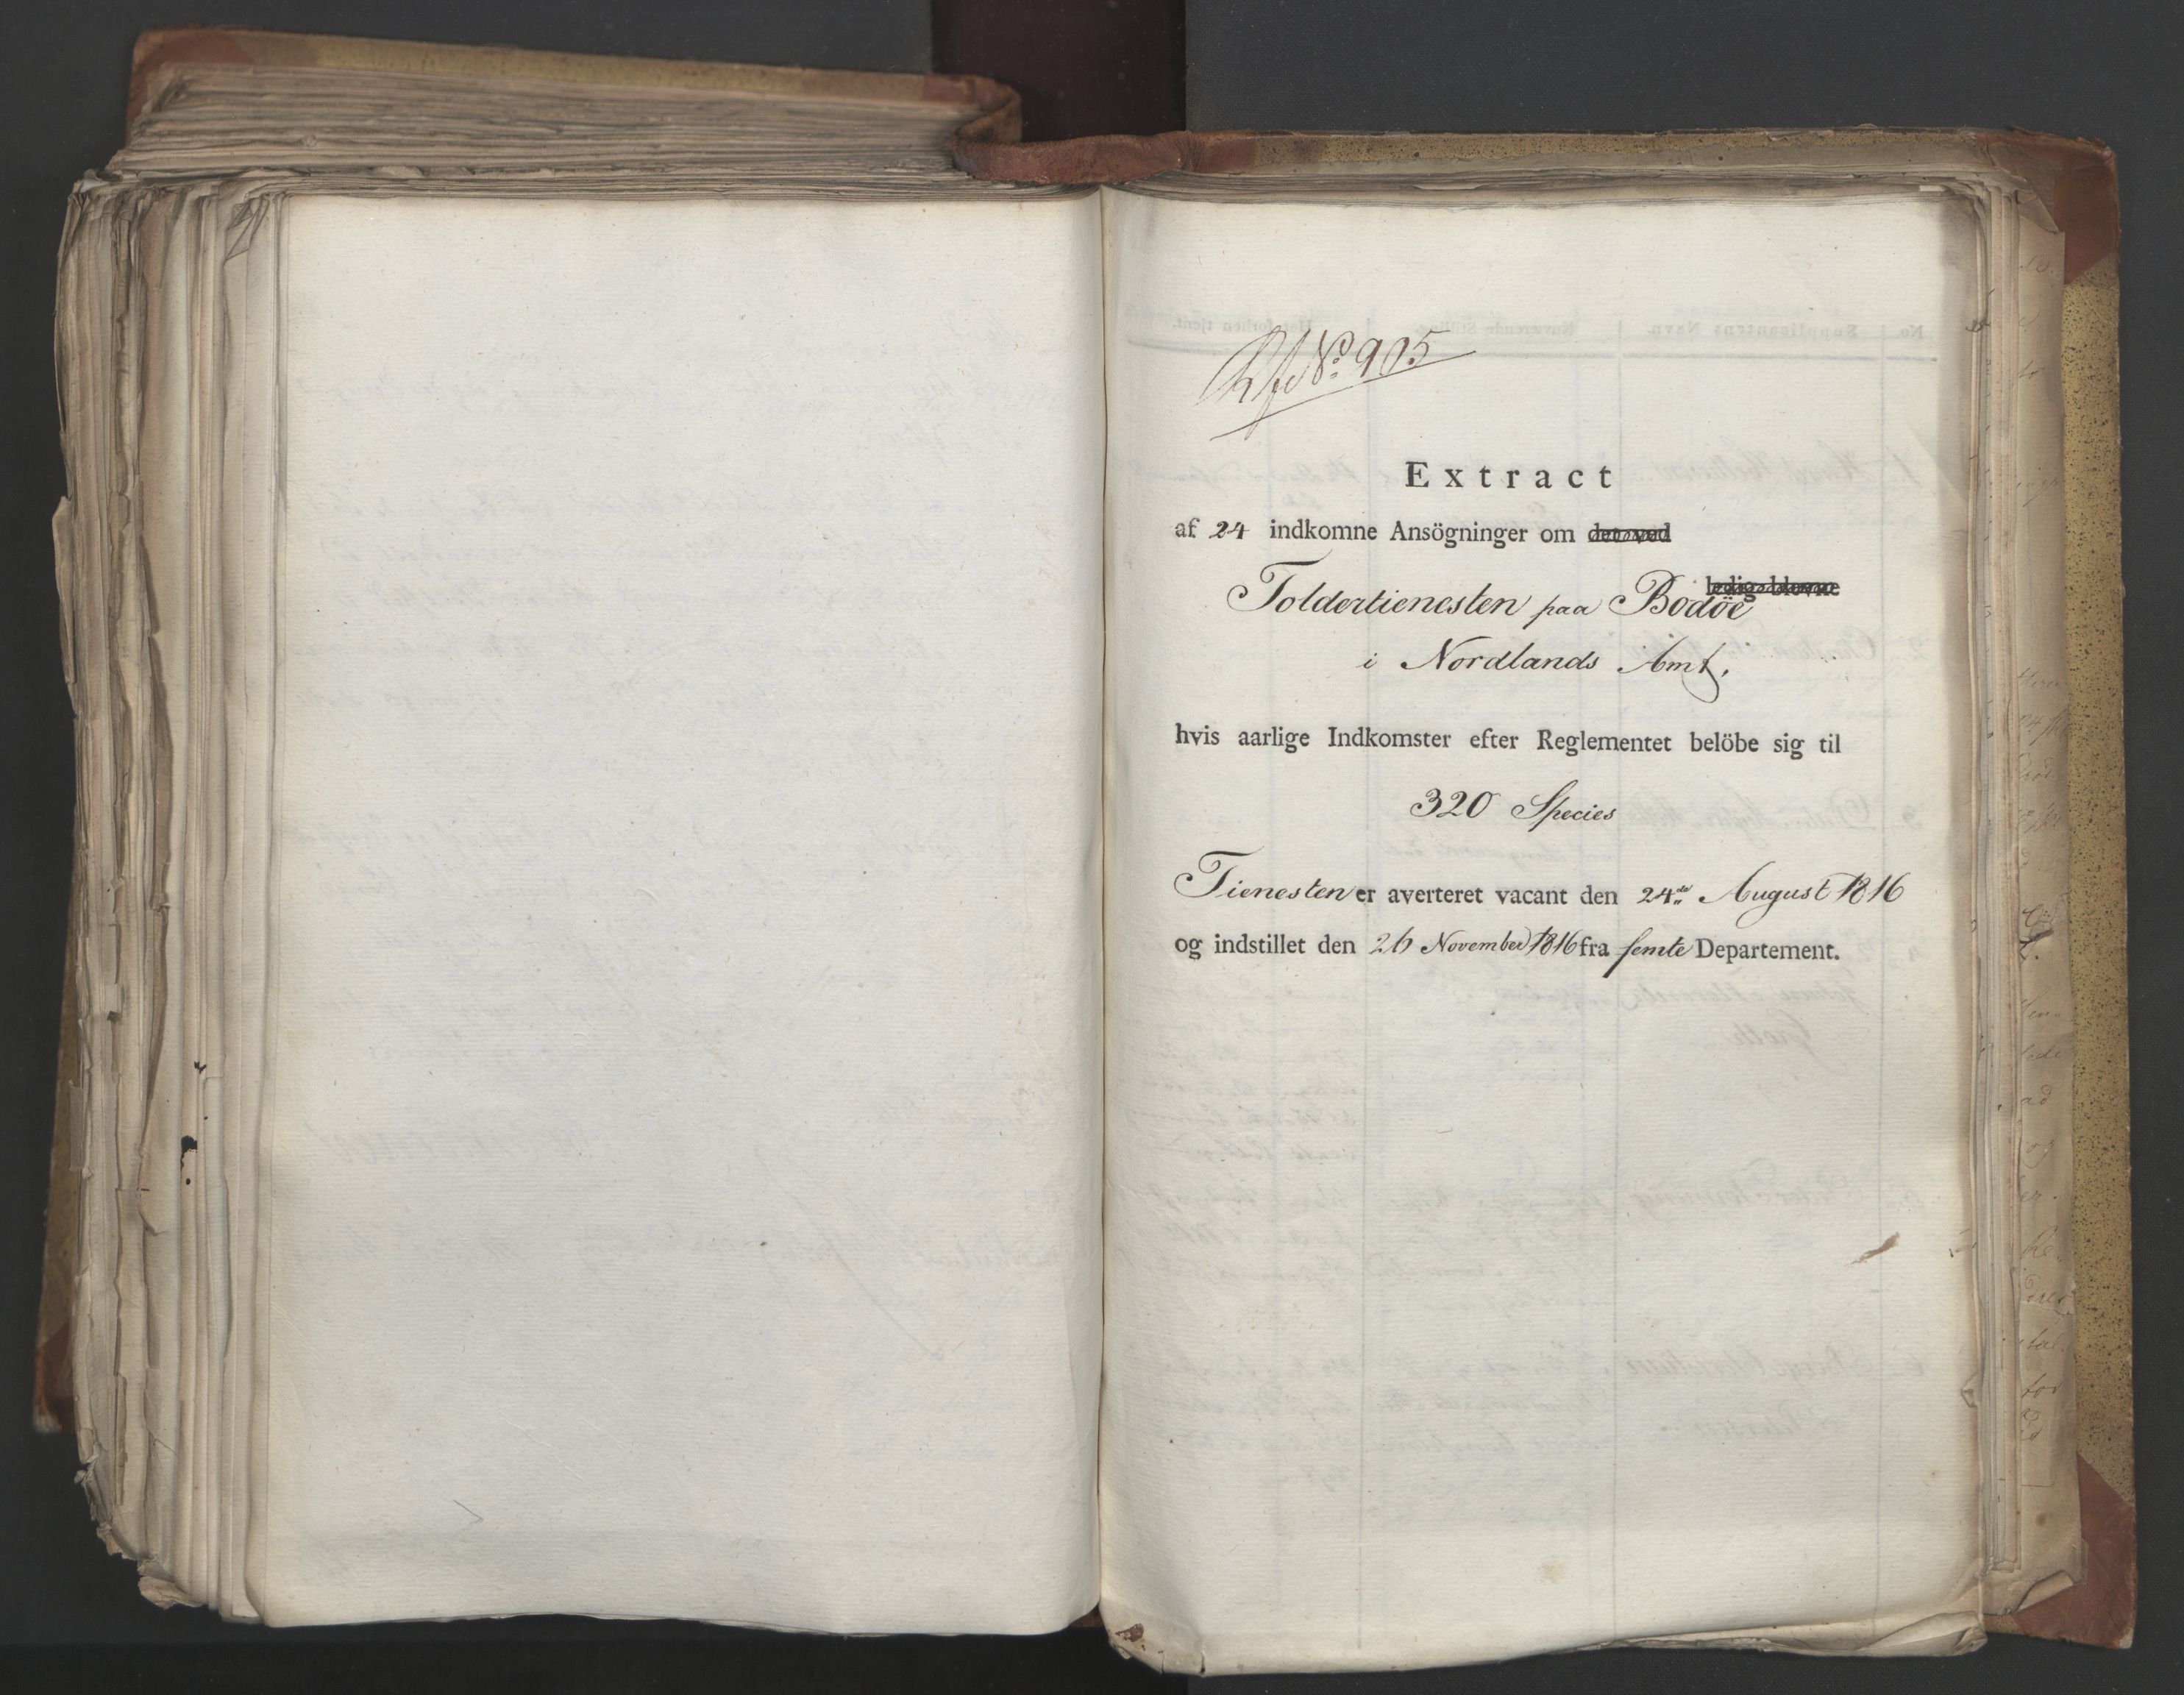 No 905
Extract
af 24 indkomne Ansögninger om det ved
ledig blevne
Toldertienesten paa Bodöe
i Nordlands Amt.
hvis aarlige Indkomster efter Reglementet belöbe sig til
320 Species
Tienesten er averteret vacant den 24de August 1816
og indstillet den 26 November 1816 fra femte Departement.